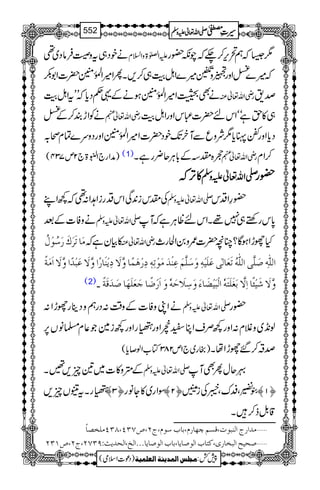 سیرتِ مصطفیٰ صلی اللہ تعالیٰ علیہ وسلم 552
مگر جیسا کہ ہم تحریر کر چکے کہ چونکہ حضور علیہ الصلوۃ والسلام نے خود ہی یہ وصیت فرما دی تھی
کہ میرے غسل اور تجہیز و تکفین میرے اہل بیت ہی کریں۔ پھر امیر المؤمنین حضرت ابوبکر
صدیق رضی اللہ تعالیٰ عنہ نے بھی بحیثیت امیر المؤمنین ہونے کے یہی حکم دیا کہ "یہ اہل بیت
ہی کا حق ہے" اس لئے حضرت عباس اور اہل بیت رضی اللہ تعالیٰ عنہم نے کواڑ بند کر کے غسل
دیا اور کفن پہنایا مگر شروع سے آخر تک خود حضرت امیر المؤمنین اور دوسرے تمام صحابہ
کرام رضی اللہ تعالیٰ عنہم حجرہ مقدسہ کے باہر حاضر رہے۔ (1) (مدارج النبوۃ ج۲ ص۴۳۷)
حضور صلی اللہ تعالیٰ علیہ وسلم کا ترکہ
حضور اقدس صلی اللہ تعالیٰ علیہ وسلم کی مقدس زندگی اس قدر زاہدانہ تھی کہ کچھ اپنے
پاس رکھتے ہی نہیں تھے۔ اس لئے ظاہر ہے کہ آپ صلی اللہ تعالیٰ علیہ وسلم نے وفات کے بعد
کیا چھوڑا ہوگا؟ چنانچہ حضرت عمرو بن الحارث رضی اللہ تعالیٰ عنہ کا بیان ہے کہ مَا تَرَكَ رَسُوْلُ
اللّٰهِ صَلَّى اللّٰهُ تَعَالٰى عَلَيْهِ وَسَلَّمَ عِنْدَ مَوْتِهٖ دِرْهَمًا وَّلَا دِيْنَارًا وَّلَا عَبْدًا وَّلَا اَمَةً
وَّلَا شَيْئًا اِلَّا بَغْلَتَهُ الْبَيْضَاءَ وَسِلَاحَهٗ وَاَرْضًا جَعَلَهَا صَدَقَةً۔ (2)
حضور صلی اللہ تعالیٰ علیہ وسلم نے اپنی وفات کے وقت نہ درہم و دینار چھوڑا نہ
لونڈی و غلام نہ اور کچھ صرف اپنا سفید خچر اور ہتھیار اور کچھ زمین جو عام مسلمانوں پر
صدقہ کر گئے چھوڑا تھا۔ (بخاری ج۱ ص۳۸۲ کتاب الوصایا)
بہر حال پھر بھی آپ صلی اللہ تعالیٰ علیہ وسلم کے متروکات میں تین چیزیں تھیں۔
﴿۱﴾ بنو نضیر، فدک، خیبر کی زمینیں ﴿۲﴾ سواری کا جانور ﴿۳﴾ ہتھیار۔ یہ تینوں چیزیں
قابل ذکر ہیں۔
مدارج النبوت، قسم چہارم، باب سوم، ج۲، ص۴۳۸،۴۳۷ ملخصاً
صحیح البخاری، کتاب الوصایا، باب الوصایا...الخ، الحدیث:۲۷۳۹، ج۲، ص۲۳۱
پیش کش: مجلس المدینۃ العلمیۃ (دعوتِ اسلامی)